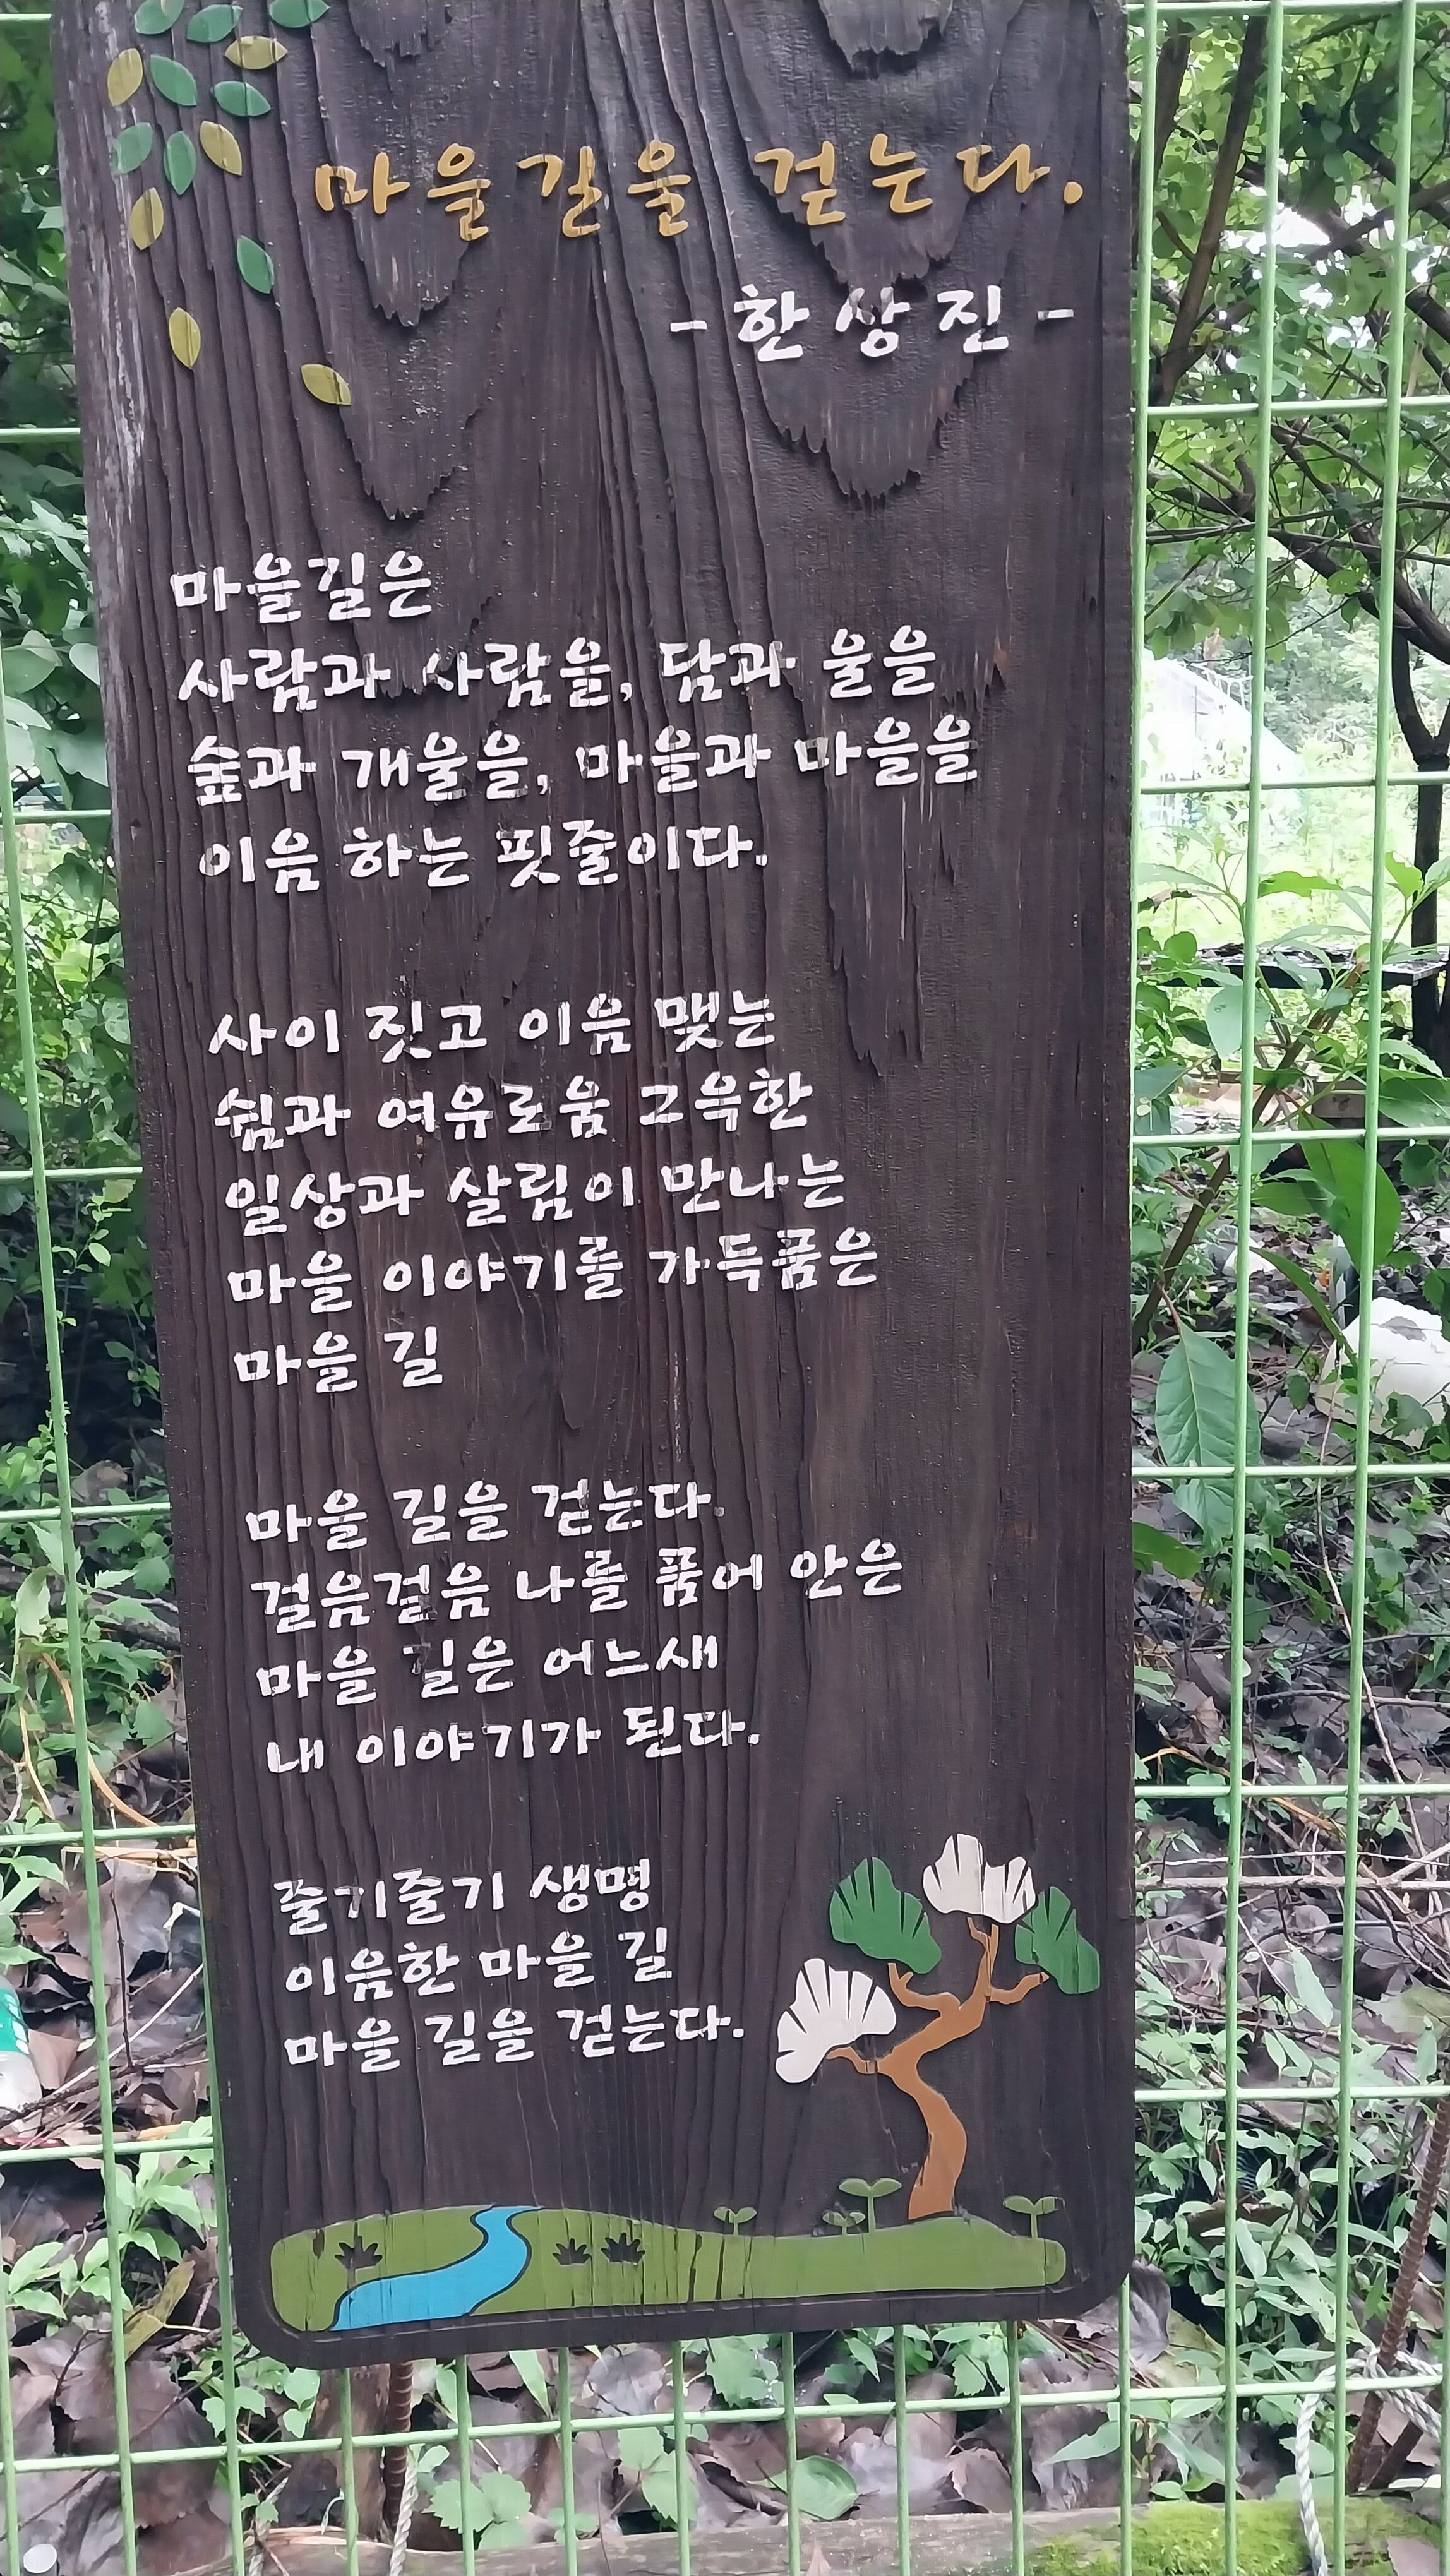 마을길을 걷는다.
- 한상진 -
마을길은
사람과 사람을, 담과 울을
숲과 개울을, 마을과 마을을
이음 하는 핏줄이다.
사이 짓고 이음 맺는
쉼과 여유로움 그윽한
일상과 살림이 만나는
마을 이야기를 가득품은
마을 길
마을 길을 걷는다.
걸음걸음 나를 품어 안은
마을 길은 어느새
내 이야기가 된다.
줄기줄기 생명
이음한 마을 길
마을 길을 걷는다.